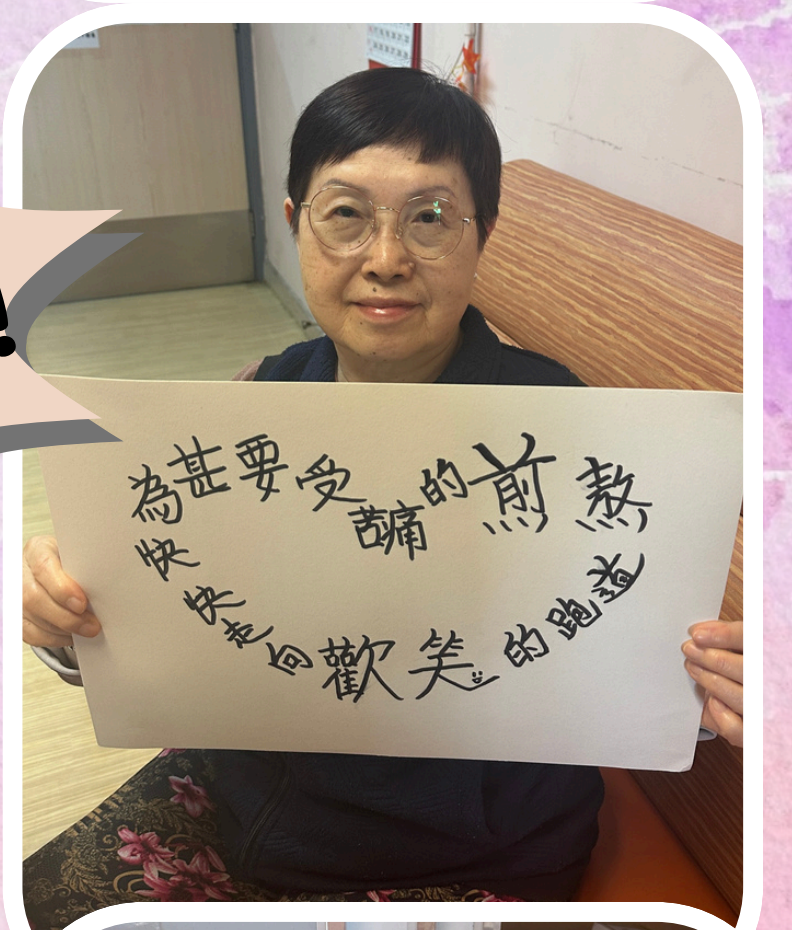 !
為甚要受苦痛的煎熬
快快走向歡笑的跑道